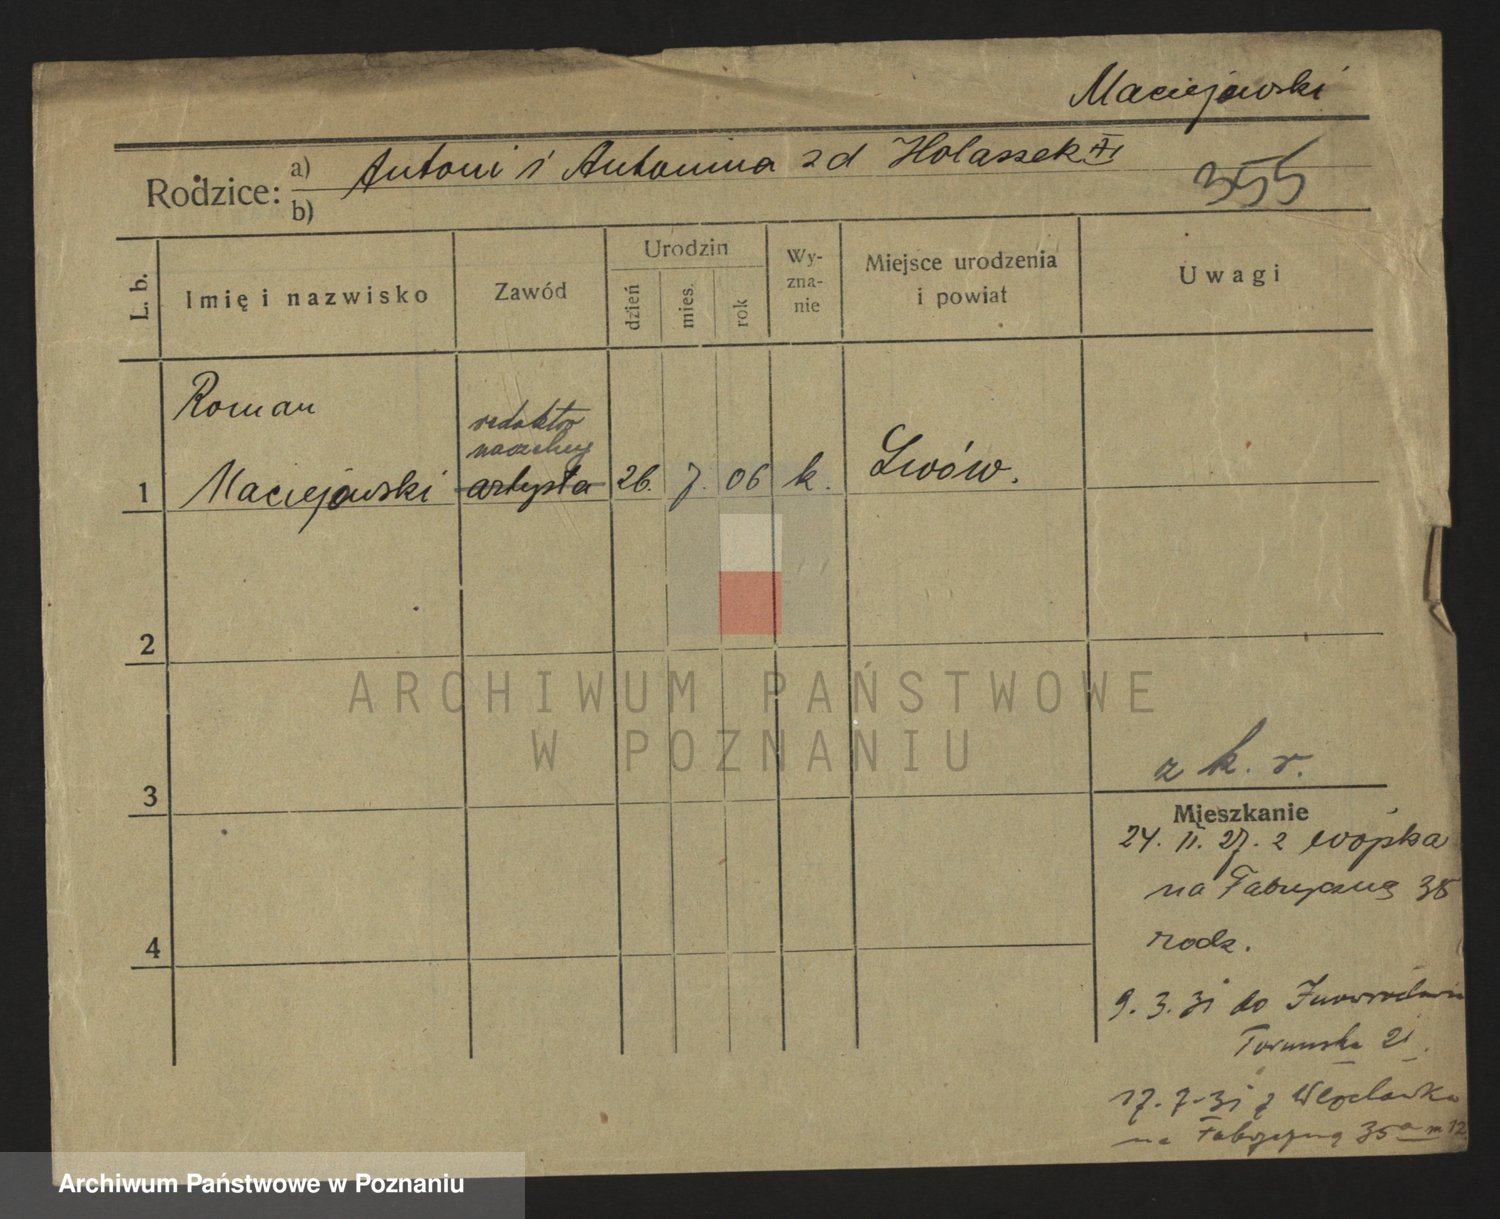 Maciejewski
Rodzice: a) Antoni i Antonina zd Holassek
b)
355
L. b.
Imię i nazwisko
Zawód
Urodzin
dzień
mies.
rok
Wy-
zna-
nie
Miejsce urodzenia
i powiat
Uwagi
Roman
redaktor
naczelny
1 Maciejewski artysta 26. 7. 06 k. Lwów.
2
ARCHIWUM PAŃSTWOWE
W POZNANIU
z k. r.
3
Mieszkanie
24. II. 27. z wojska
na Fabryczną 35
rodz.
4
9. 3. 31 do Inowrocławia
Toruńska 21.
17. 7. 31 z Włocławka
na Fabryczną 35a m 12
Archiwum Państwowe w Poznaniu